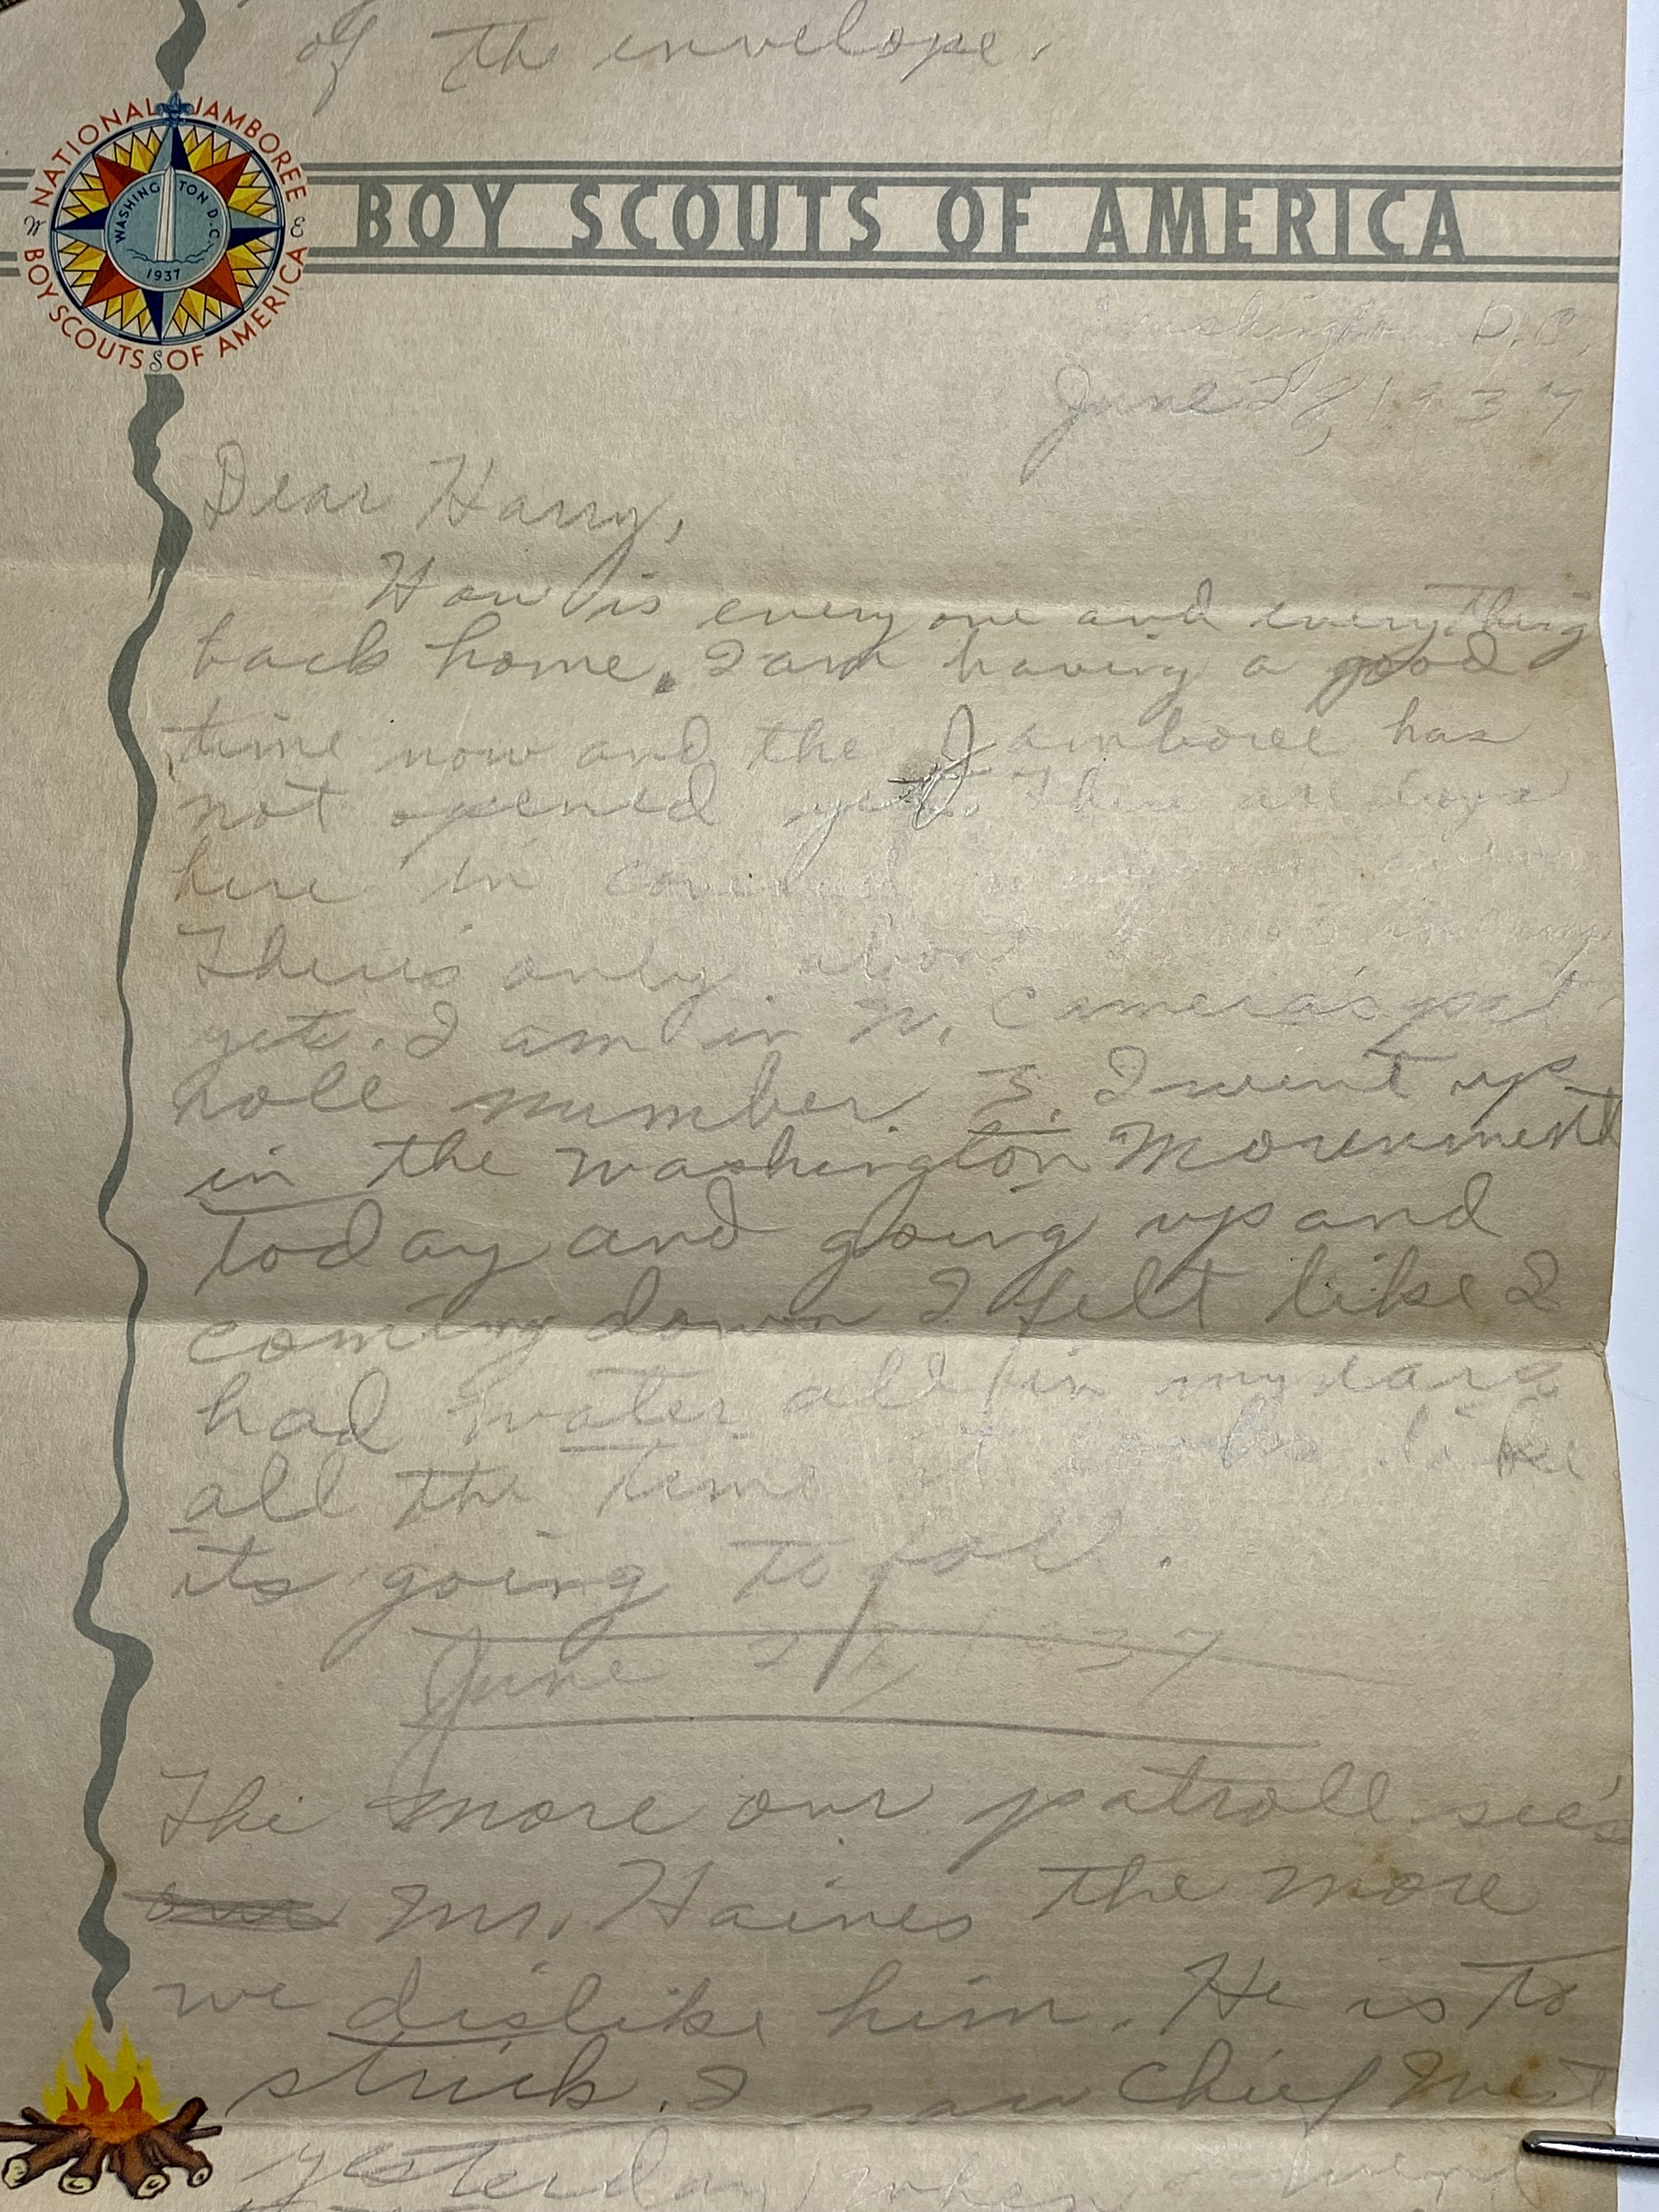 of the envelope.
NATIONAL JAMBOREE
BOY SCOUTS OF AMERICA
W E S
WASHINGTON D.C.
1937
BOY SCOUTS OF AMERICA
Washington D.C.
June 28, 1937
Dear Harry,
How is every one and everything
back home. I am having a good
time now and the Jamboree has
not opened yet. There are boys
here in covered
There's only about in camp
yet. I am in N. Camera's pat
roll number 3. I went up
in the washington Monument
today and going up and
coming down I felt like I
had water all in my ears
all the time it looks like
its going to fall.
June 1937
The more our patroll see's
our Mr. Haines the more
we dislike him. He is to
strick. I saw Chief West
yesterday when I went